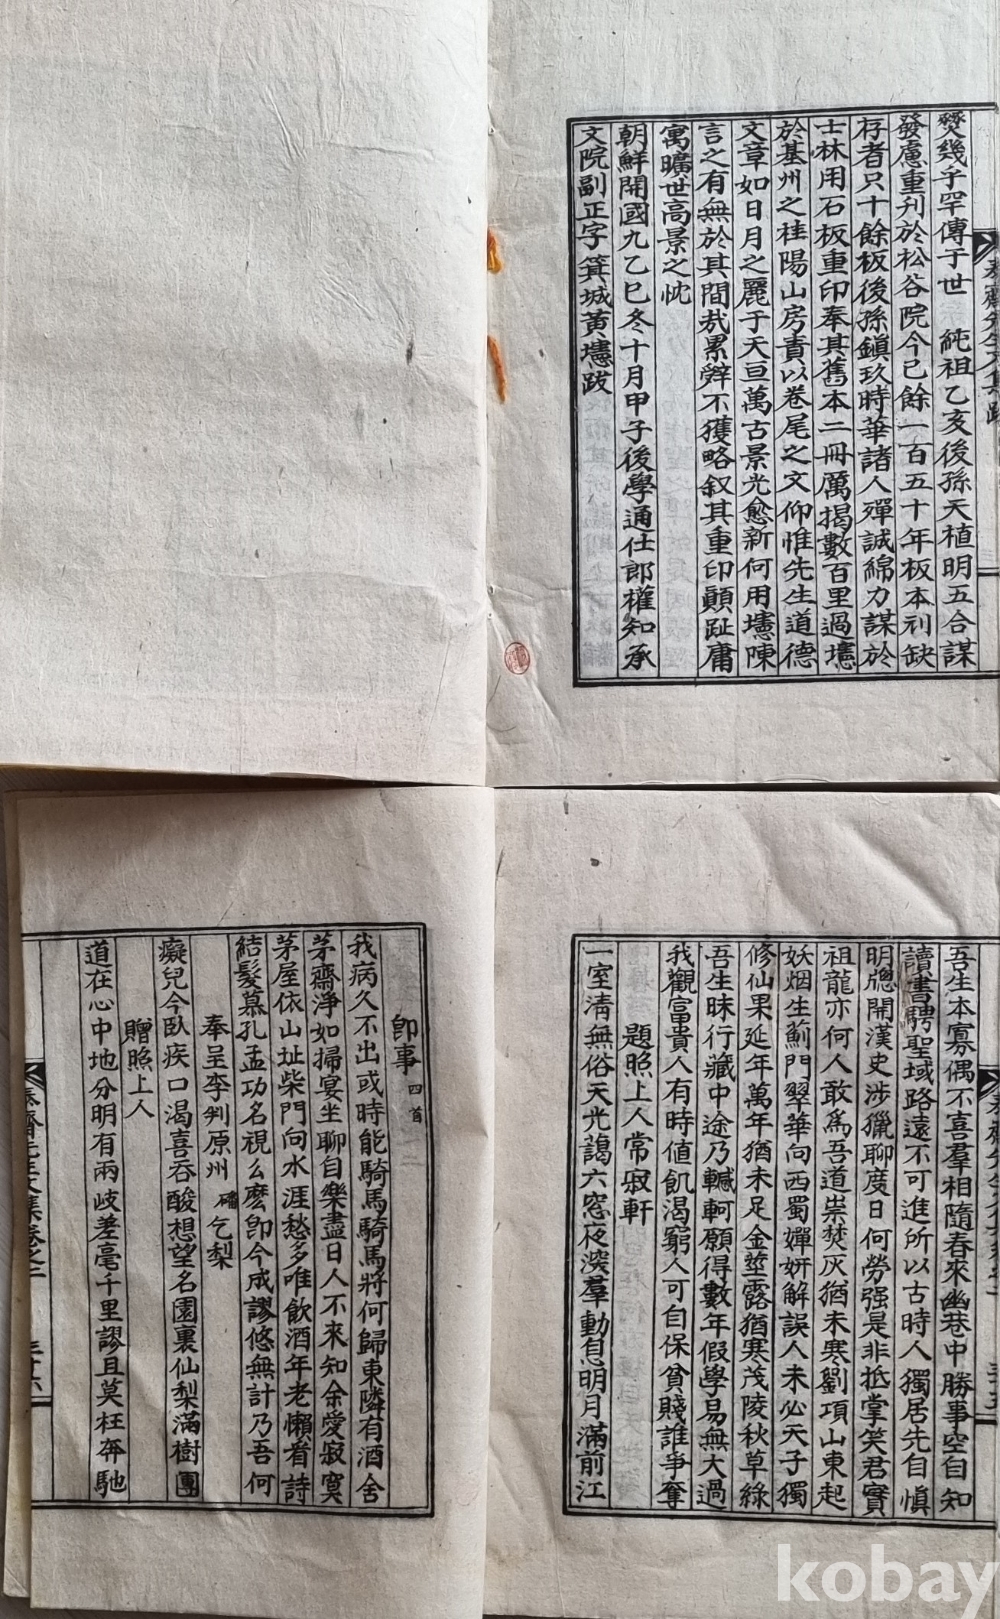 燹幾乎罕傳于世 純祖乙亥後孫天植明五合謀
發慮重刊於松谷院今已餘一百五十年板本刓缺
存者只十餘板後孫鎭玖時華諸人殫誠綿力謀於
士林用石板重印奉其舊本二冊厲揭數百里過壥
於基州之桂陽山房責以卷尾之文仰惟先生道德
文章如日月之麗于天亘萬古景光愈新何用壥陳
言之有無於其間哉累辭不獲略叙其重印顚趾庸
寓曠世高景之忱
朝鮮開國九乙巳冬十月甲子後學通仕郎權知承
文院副正字箕城黃壥跋
吾生本寡偶不喜羣相隨春來幽巷中勝事空自知
讀書騁聖域路遠不可進所以古時人獨居先自愼
明牎開漢史涉獵聊度日何勞强是非抵掌笑君實
祖龍亦何人敢爲吾道祟焚灰猶未寒劉項山東起
妖烟生薊門翠華向西蜀嬋姸解誤人未必天子獨
修仙果延年萬年猶未足金莖露猶寒茂陵秋草綠
吾生昧行藏中途乃轗軻願得數年假學易無大過
我觀富貴人有時値飢渴窮人可自保貧賤誰爭奪
題照上人常寂軒
一室淸無俗天光謁六窓夜深羣動息明月滿前江
卽事 四首
我病久不出或時能騎馬騎馬將何歸東隣有酒舍
茅齋淨如掃宴坐聊自樂盡日人不來知余愛寂寞
茅屋依山址柴門向水涯愁多唯飮酒年老懶看詩
結髮慕孔孟功名視么麽卽今成謬悠無計乃吾何
奉呈李判原州 磻 乞梨
癡兒今臥疾口渴喜呑酸想望名園裏仙梨滿樹團
贈照上人
道在心中地分明有兩歧差毫千里謬且莫枉奔馳
kobay